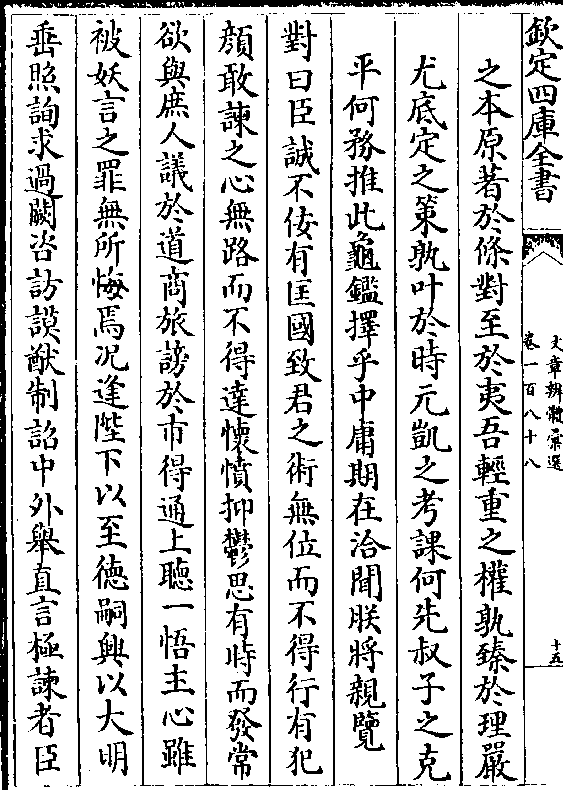 欽定四庫全書
文章辨體彙選
卷一百八十八
十五
之本原著於條對至於夷吾輕重之權孰臻於理嚴
尤底定之策孰叶於時元凱之考課何先叔子之克
平何務推此龜鑑擇乎中庸期在洽聞朕將親覽
對曰臣誠不佞有匡國致君之術無位而不得行有犯
顔敢諫之心無路而不得達懷憤抑鬱思有時而發常
欲與庶人議於道商旅謗於市得通上聽一悟主心雖
被妖言之罪無所悔焉况逢陛下以至徳嗣興以大明
垂照詢求過闕咨訪謨猷制詔中外舉直言極諫者臣